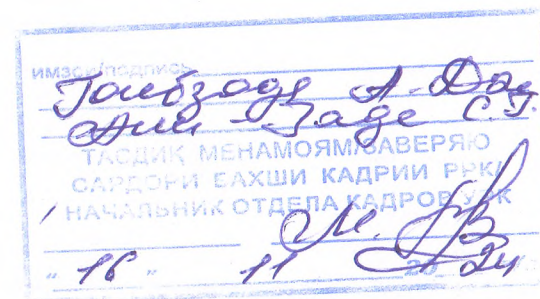 ИМЗОИ/ПОДПИСЬ
Гоибзода А. Дод
Али-Заде С.Г.
ТАСДИК МЕНАМОЯМ/ЗАВЕРЯЮ
САРДОРИ БАХШИ КАДРИИ РРК/
НАЧАЛЬНИК ОТДЕЛА КАДРОВ УРК
" 16 " 11 2024